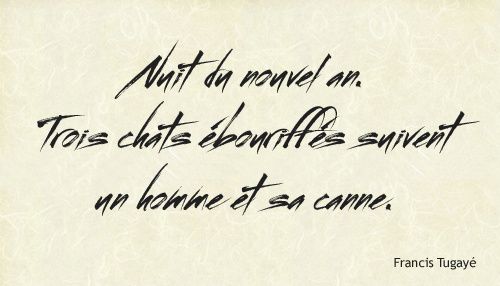 Nuit du nouvel an.
Trois chats ébouriffés suivent
un homme et sa canne.
Francis Tugayé